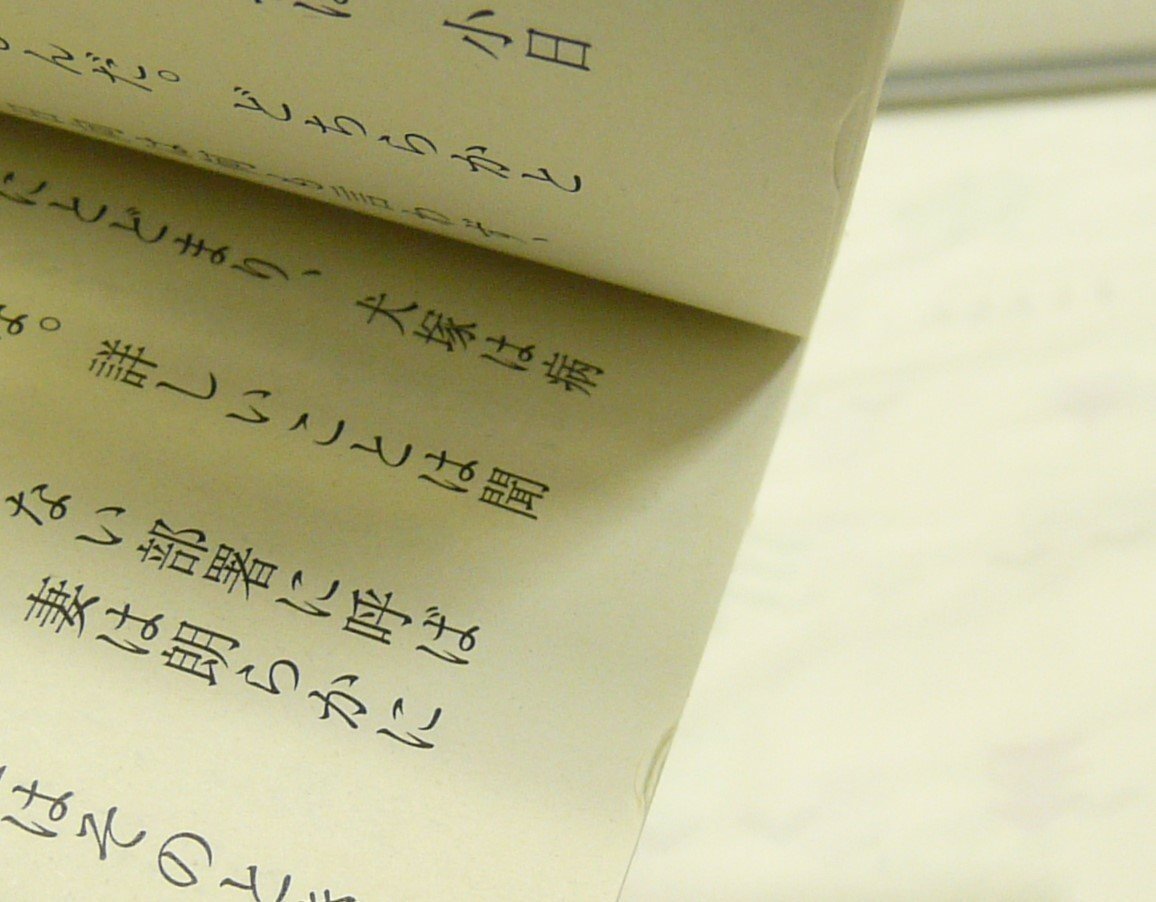 小
んだ。どちらかと
言われ、
にとどまり、犬塚は病
。詳しいことは聞
ない部署に呼ば
妻は明らかに
はそのとき